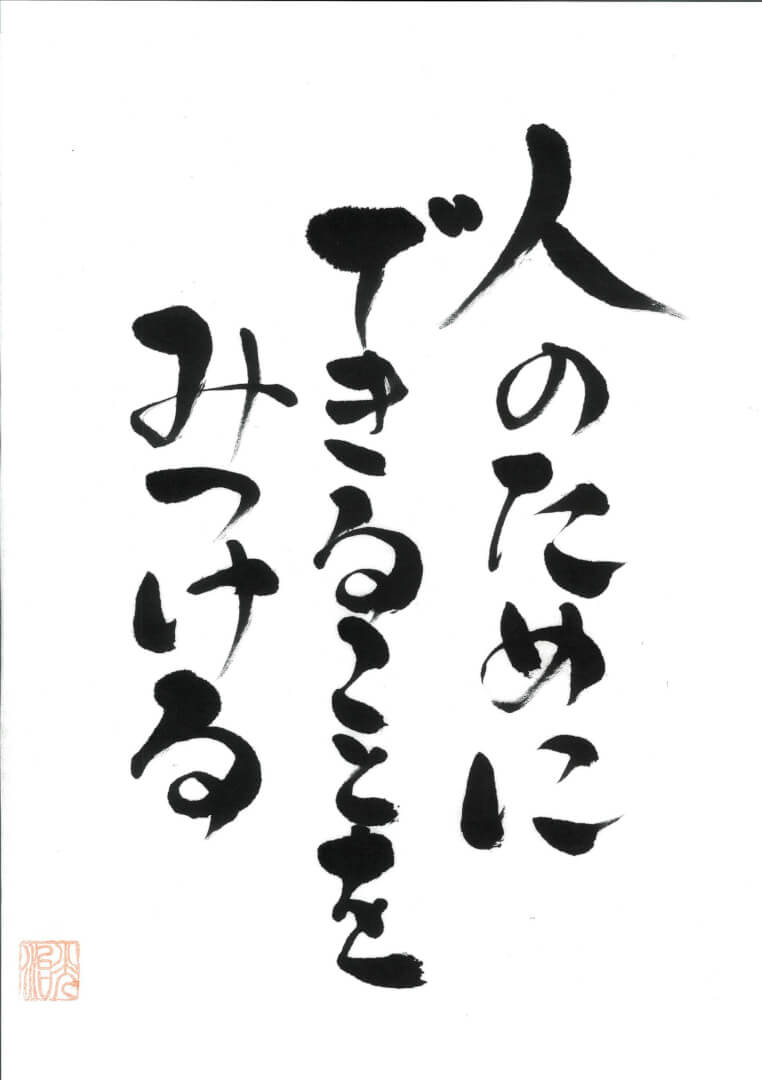 人のために
できることを
みつける